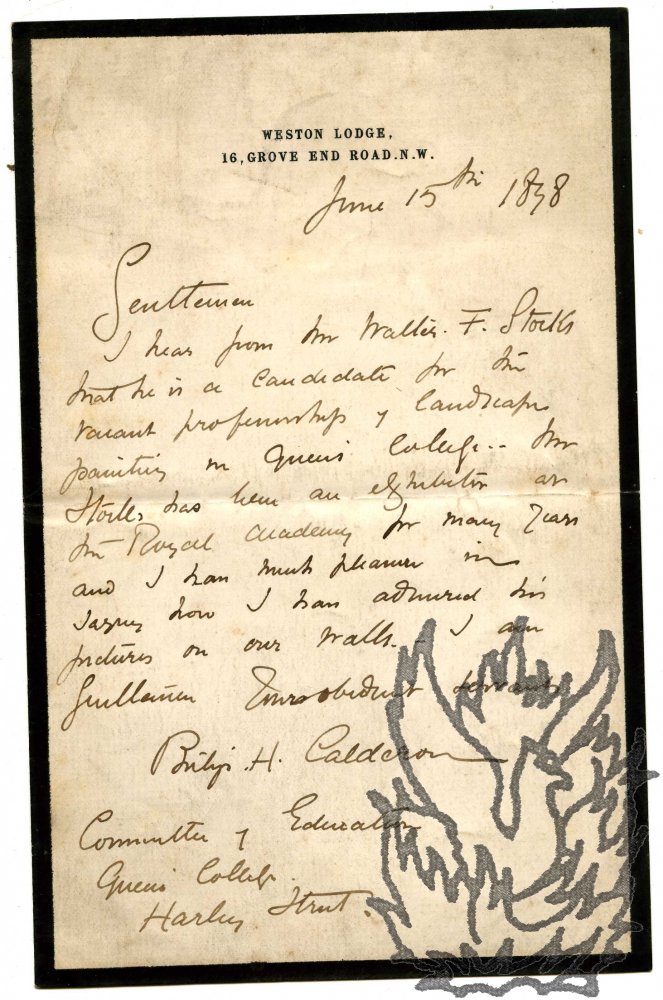 WESTON LODGE,
16, GROVE END ROAD. N.W.
June 15th 1878
Gentlemen
I hear from Mr Walter. F. Stocks
that he is a candidate for the
vacant professorship of landscape
painting in Queens College.. Mr
Stocks has been an exhibitor at
the Royal Academy for many years
and I have much pleasure in
saying how I have admired his
pictures on our walls.. I am
Gentlemen Your obedient servant
Philip. H. Calderon
Committee of Education
Queens College.
Harley Street.